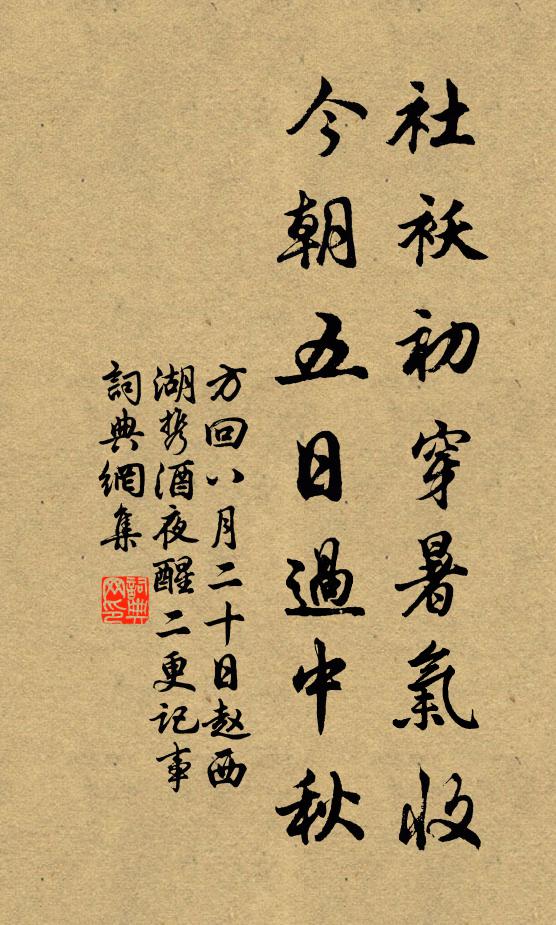 社袄初穿暑氣收
今朝五日過中秋
方回八月二十日赵西
湖携酒夜醒二更記事
詞典網集
詞典網印